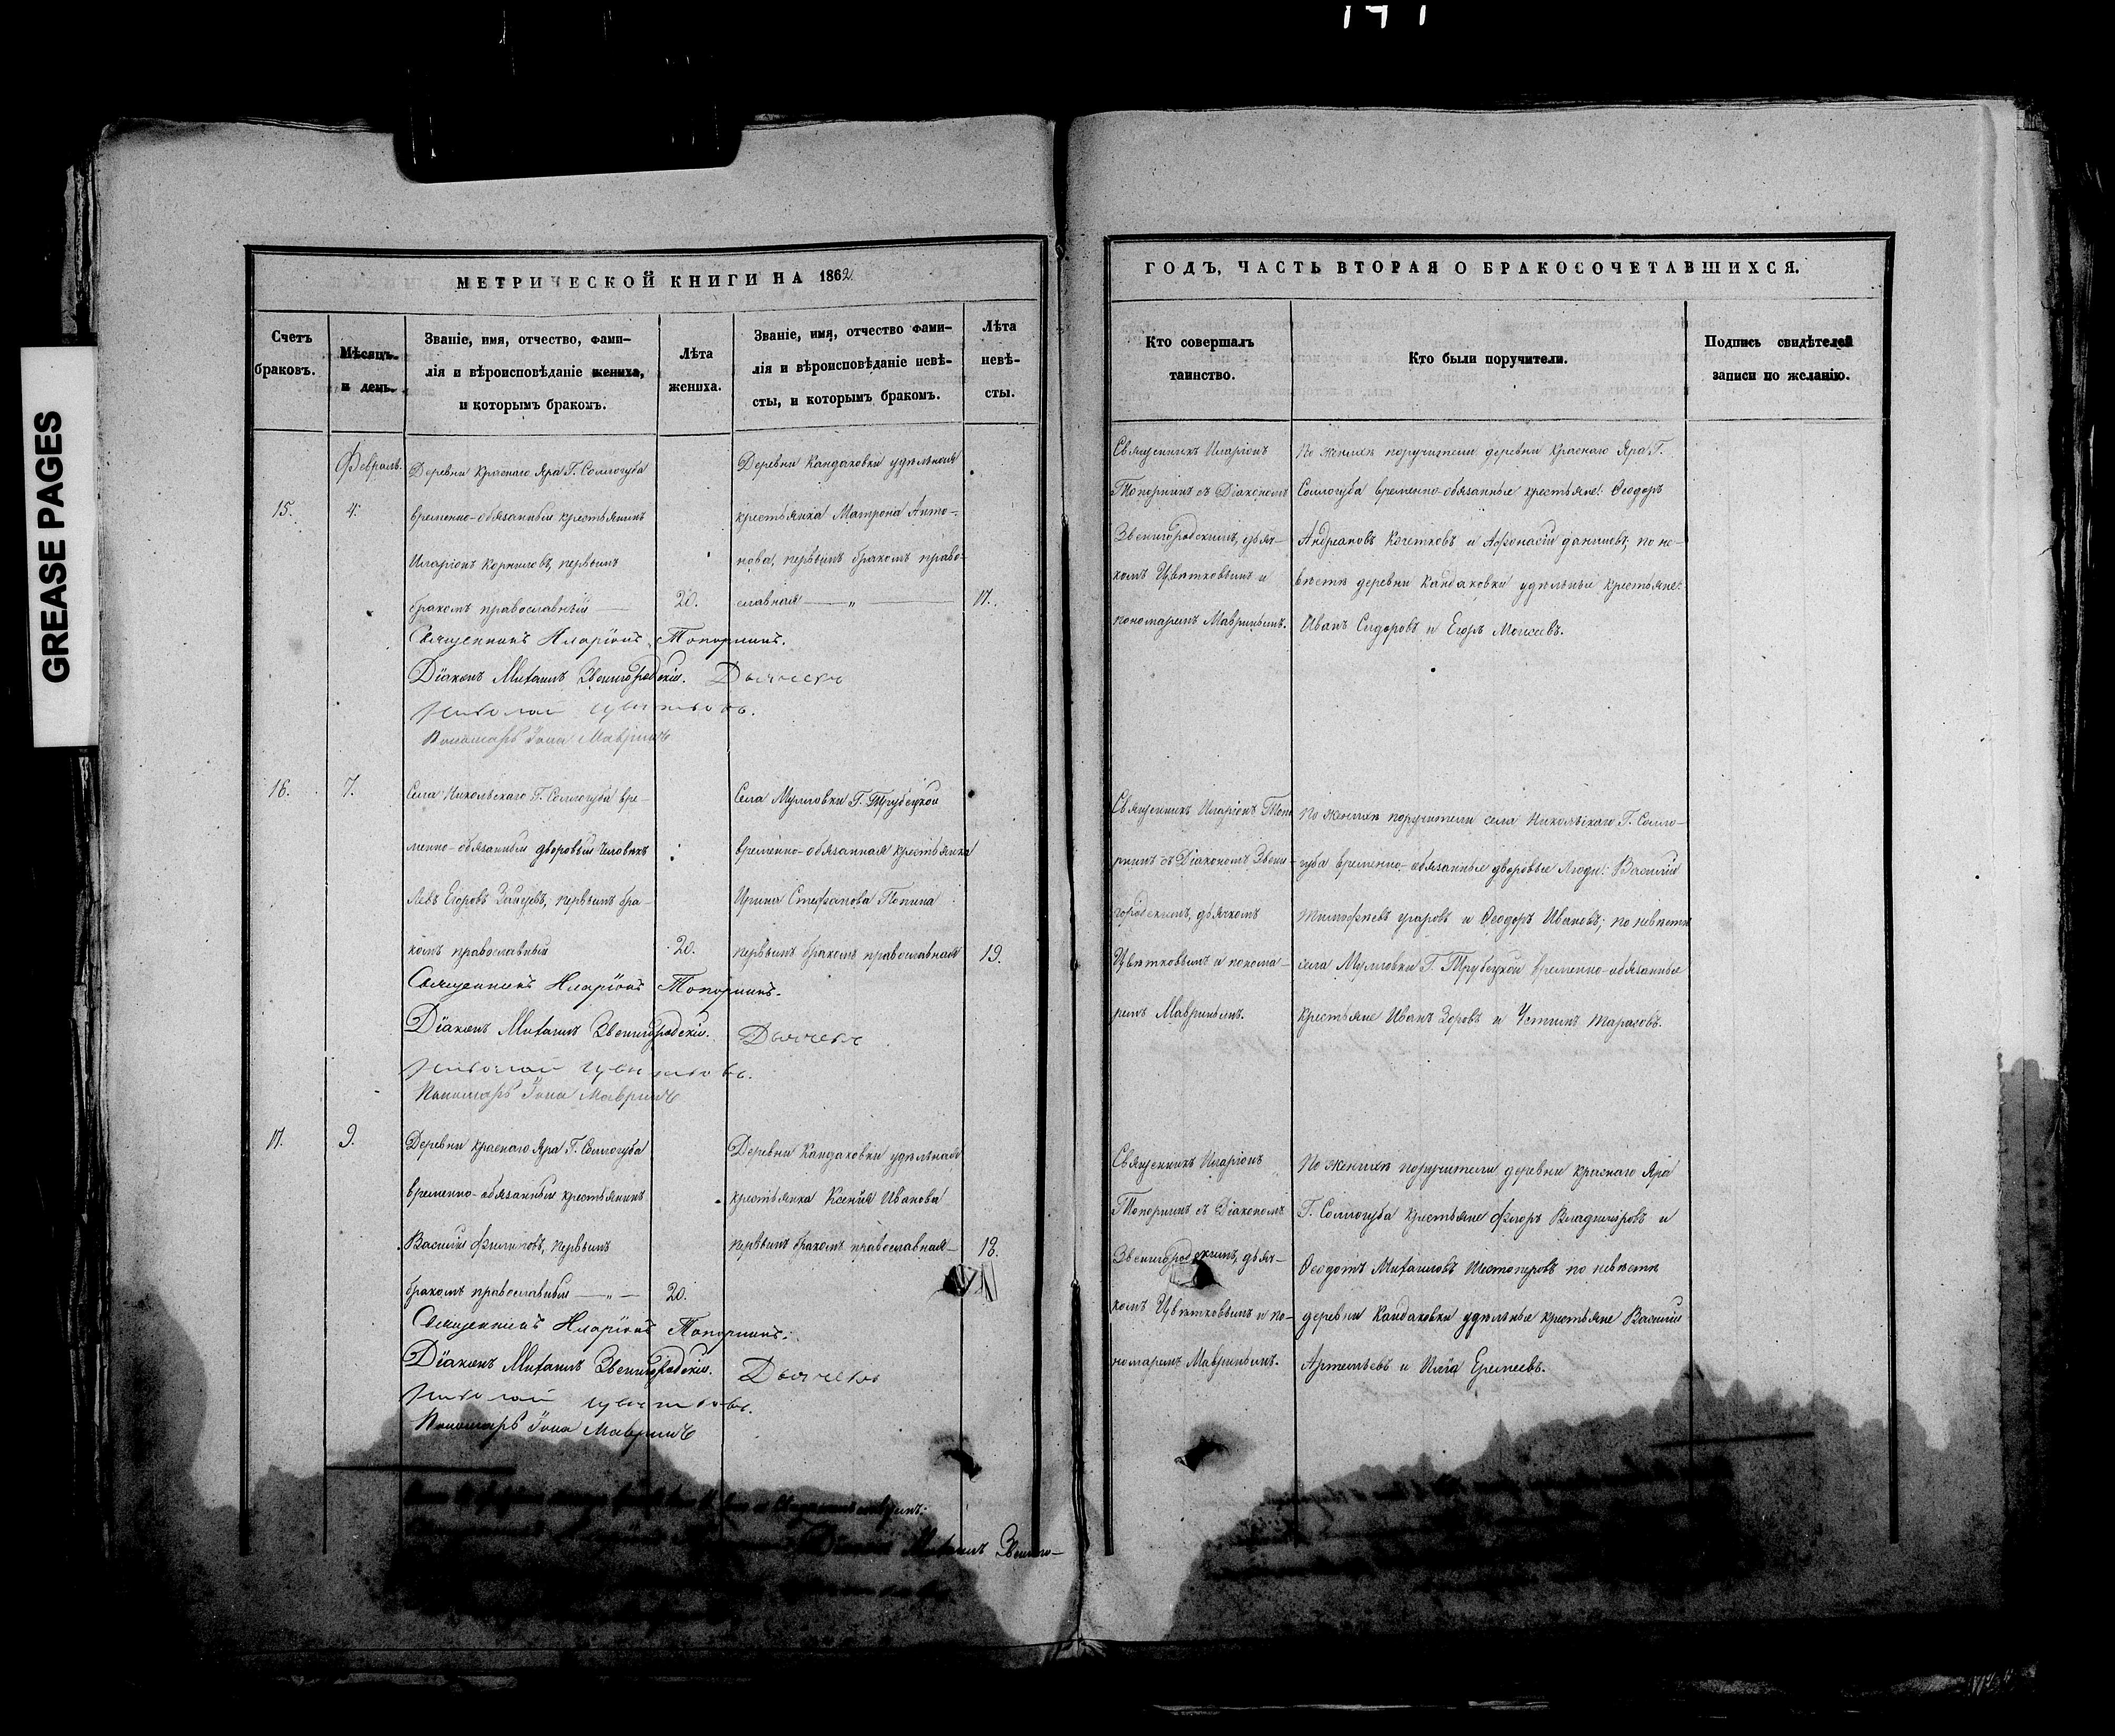 GREASE PAGES
МЕТРИЧЕСКОЙ КНИГИ НА 1862
Счетъ
браковъ.
Мѣсяцъ
и день.
Званіе, имя, отчество, фами-
лія и вѣроисповѣданіе жениха,
и которымъ бракомъ.
Лѣта
жениха.
Званіе, имя, отчество фами-
лія и вѣроисповѣданіе невѣ-
сты, и которымъ бракомъ.
Лѣта
невѣ-
сты.
Февраль.
15.
4.
Деревни Краснаго Яра Г. Соллогуба
временно-обязанный крестьянинъ
Иларіонъ Корниловъ, первымъ
бракомъ православный
20.
Деревни Кандаковки удѣльная
крестьянка Матрона Анто-
нова, первымъ бракомъ право-
славная
17.
Священникъ Иларіонъ Топорнинъ.
Діаконъ Михаилъ Звенигородскій. Дьячекъ
Николай Цвѣтковъ.
Пономарь Іона Мавринъ
16.
7.
Села Никольскаго Г. Соллогуба вре-
менно-обязанный дворовый человѣкъ
Левъ Егоровъ Зайцевъ, первымъ бра-
комъ православный
20.
Села Мулловки Г. Трубецкой
временно-обязанная крестьянка
Ирина Стефанова
первымъ бракомъ православная
19.
Священникъ Иларіонъ Топорнинъ.
Діаконъ Михаилъ Звенигородскій. Дьячекъ
Николай Цвѣтковъ.
Пономарь Іона Мавринъ
17.
9.
Деревни Краснаго Яра Г. Соллогуба
временно-обязанный крестьянинъ
Василій Филиповъ, первымъ
бракомъ православный
20.
Деревни Кандаковки удѣльная
крестьянка Ксенія Иванова
первымъ бракомъ православная
18.
Священникъ Иларіонъ Топорнинъ.
Діаконъ Михаилъ Звенигородскій. Дьячекъ
Николай Цвѣтковъ.
Пономарь Іона Мавринъ
Михаилъ Звениго-
ГОДЪ, ЧАСТЬ ВТОРАЯ О БРАКОСОЧЕТАВШИХСЯ.
Кто совершалъ
таинство.
Кто были поручители.
Подпись свидѣтелей
записи по желанію.
Священникъ Иларіонъ
Топорнинъ съ Діакономъ
Звенигородскимъ, дьяч-
комъ Цвѣтковымъ и
пономаремъ Мавринымъ.
По женихѣ поручители деревни Краснаго Яра Г.
Соллогуба временно-обязанные крестьяне: Ѳеодоръ
Андреановъ Кочетковъ и Афонасій Даниловъ, по не-
вѣстѣ деревни Кандаковки удѣльные крестьяне:
Иванъ Сидоровъ и Егоръ Моисеевъ.
Священникъ Иларіонъ Топо
рнинъ съ Діакономъ Звени-
городскимъ, дьячкомъ
Цвѣтковымъ и понома-
ремъ Мавринымъ.
По женихѣ поручители села Никольскаго Г. Солло-
губа временно-обязанные дворовые люди: Василій
Тимофеевъ и Ѳеодоръ Ивановъ; по невѣстѣ
села Мулловки Г. Трубецкой временно-обязанные
крестьяне Иванъ и Устинъ Тарасовъ.
Священникъ Иларіонъ
Топорнинъ съ Діакономъ
Звенигородскимъ, дьяч-
комъ Цвѣтковымъ и по-
номаремъ Мавринымъ.
По женихѣ поручители деревни Краснаго Яра
Г. Соллогуба крестьяне Ѳедоръ Владиміровъ и
Ѳеодотъ Михаиловъ Шестоперовъ по невѣстѣ
деревни Кандаковки удѣльные крестьяне Василій
Артемьевъ и Илія Еремеевъ.